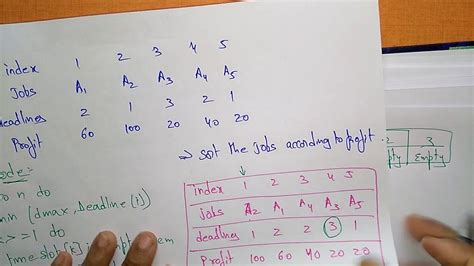 index 1 2 3 4 5
Jobs A₁ A₂ A₃ A₄ A₅
eadlines 2 1 3 2 1
Profit 60 100 20 40 20
⇒ sort the jobs according to profit.
2 3
pty Empty
ode:-
n do
[dmax, Deadline(i)]
1 do
timeslot[k] is
index 1 2 3 4 5
jobs A₂ A₁ A₄ A₃ A₅
deadlines 1 2 2 3 1
Profit 100 60 40 20 20